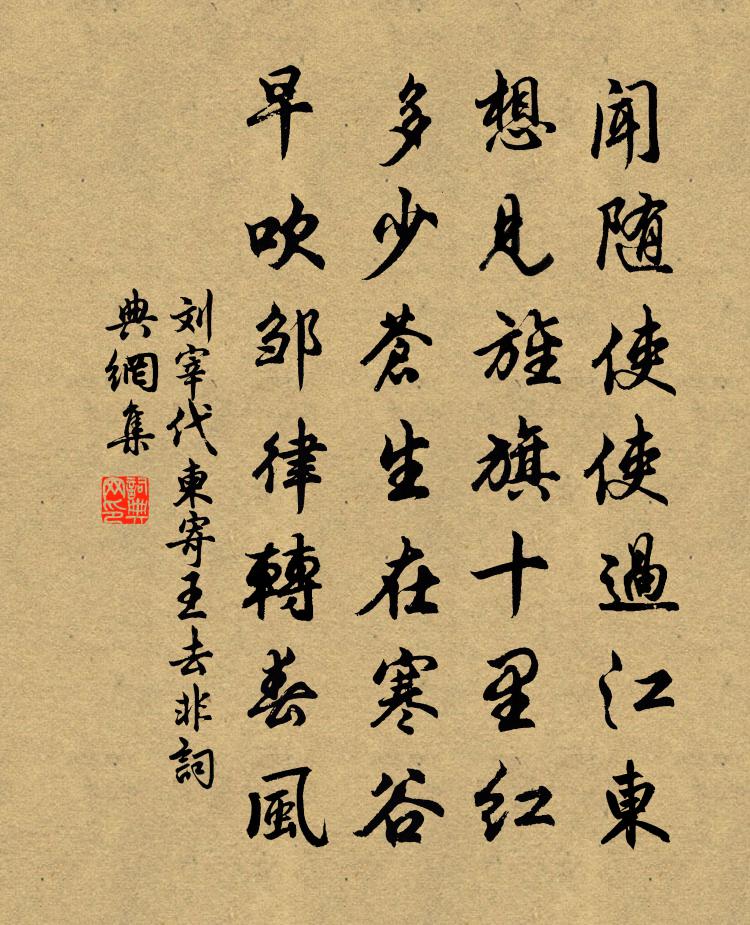 闻随使使過江東
想見旌旗十里紅
多少蒼生在寒谷
早吹邹律轉春風
刘宰代柬寄王去非詞
典網集
詞典
网印